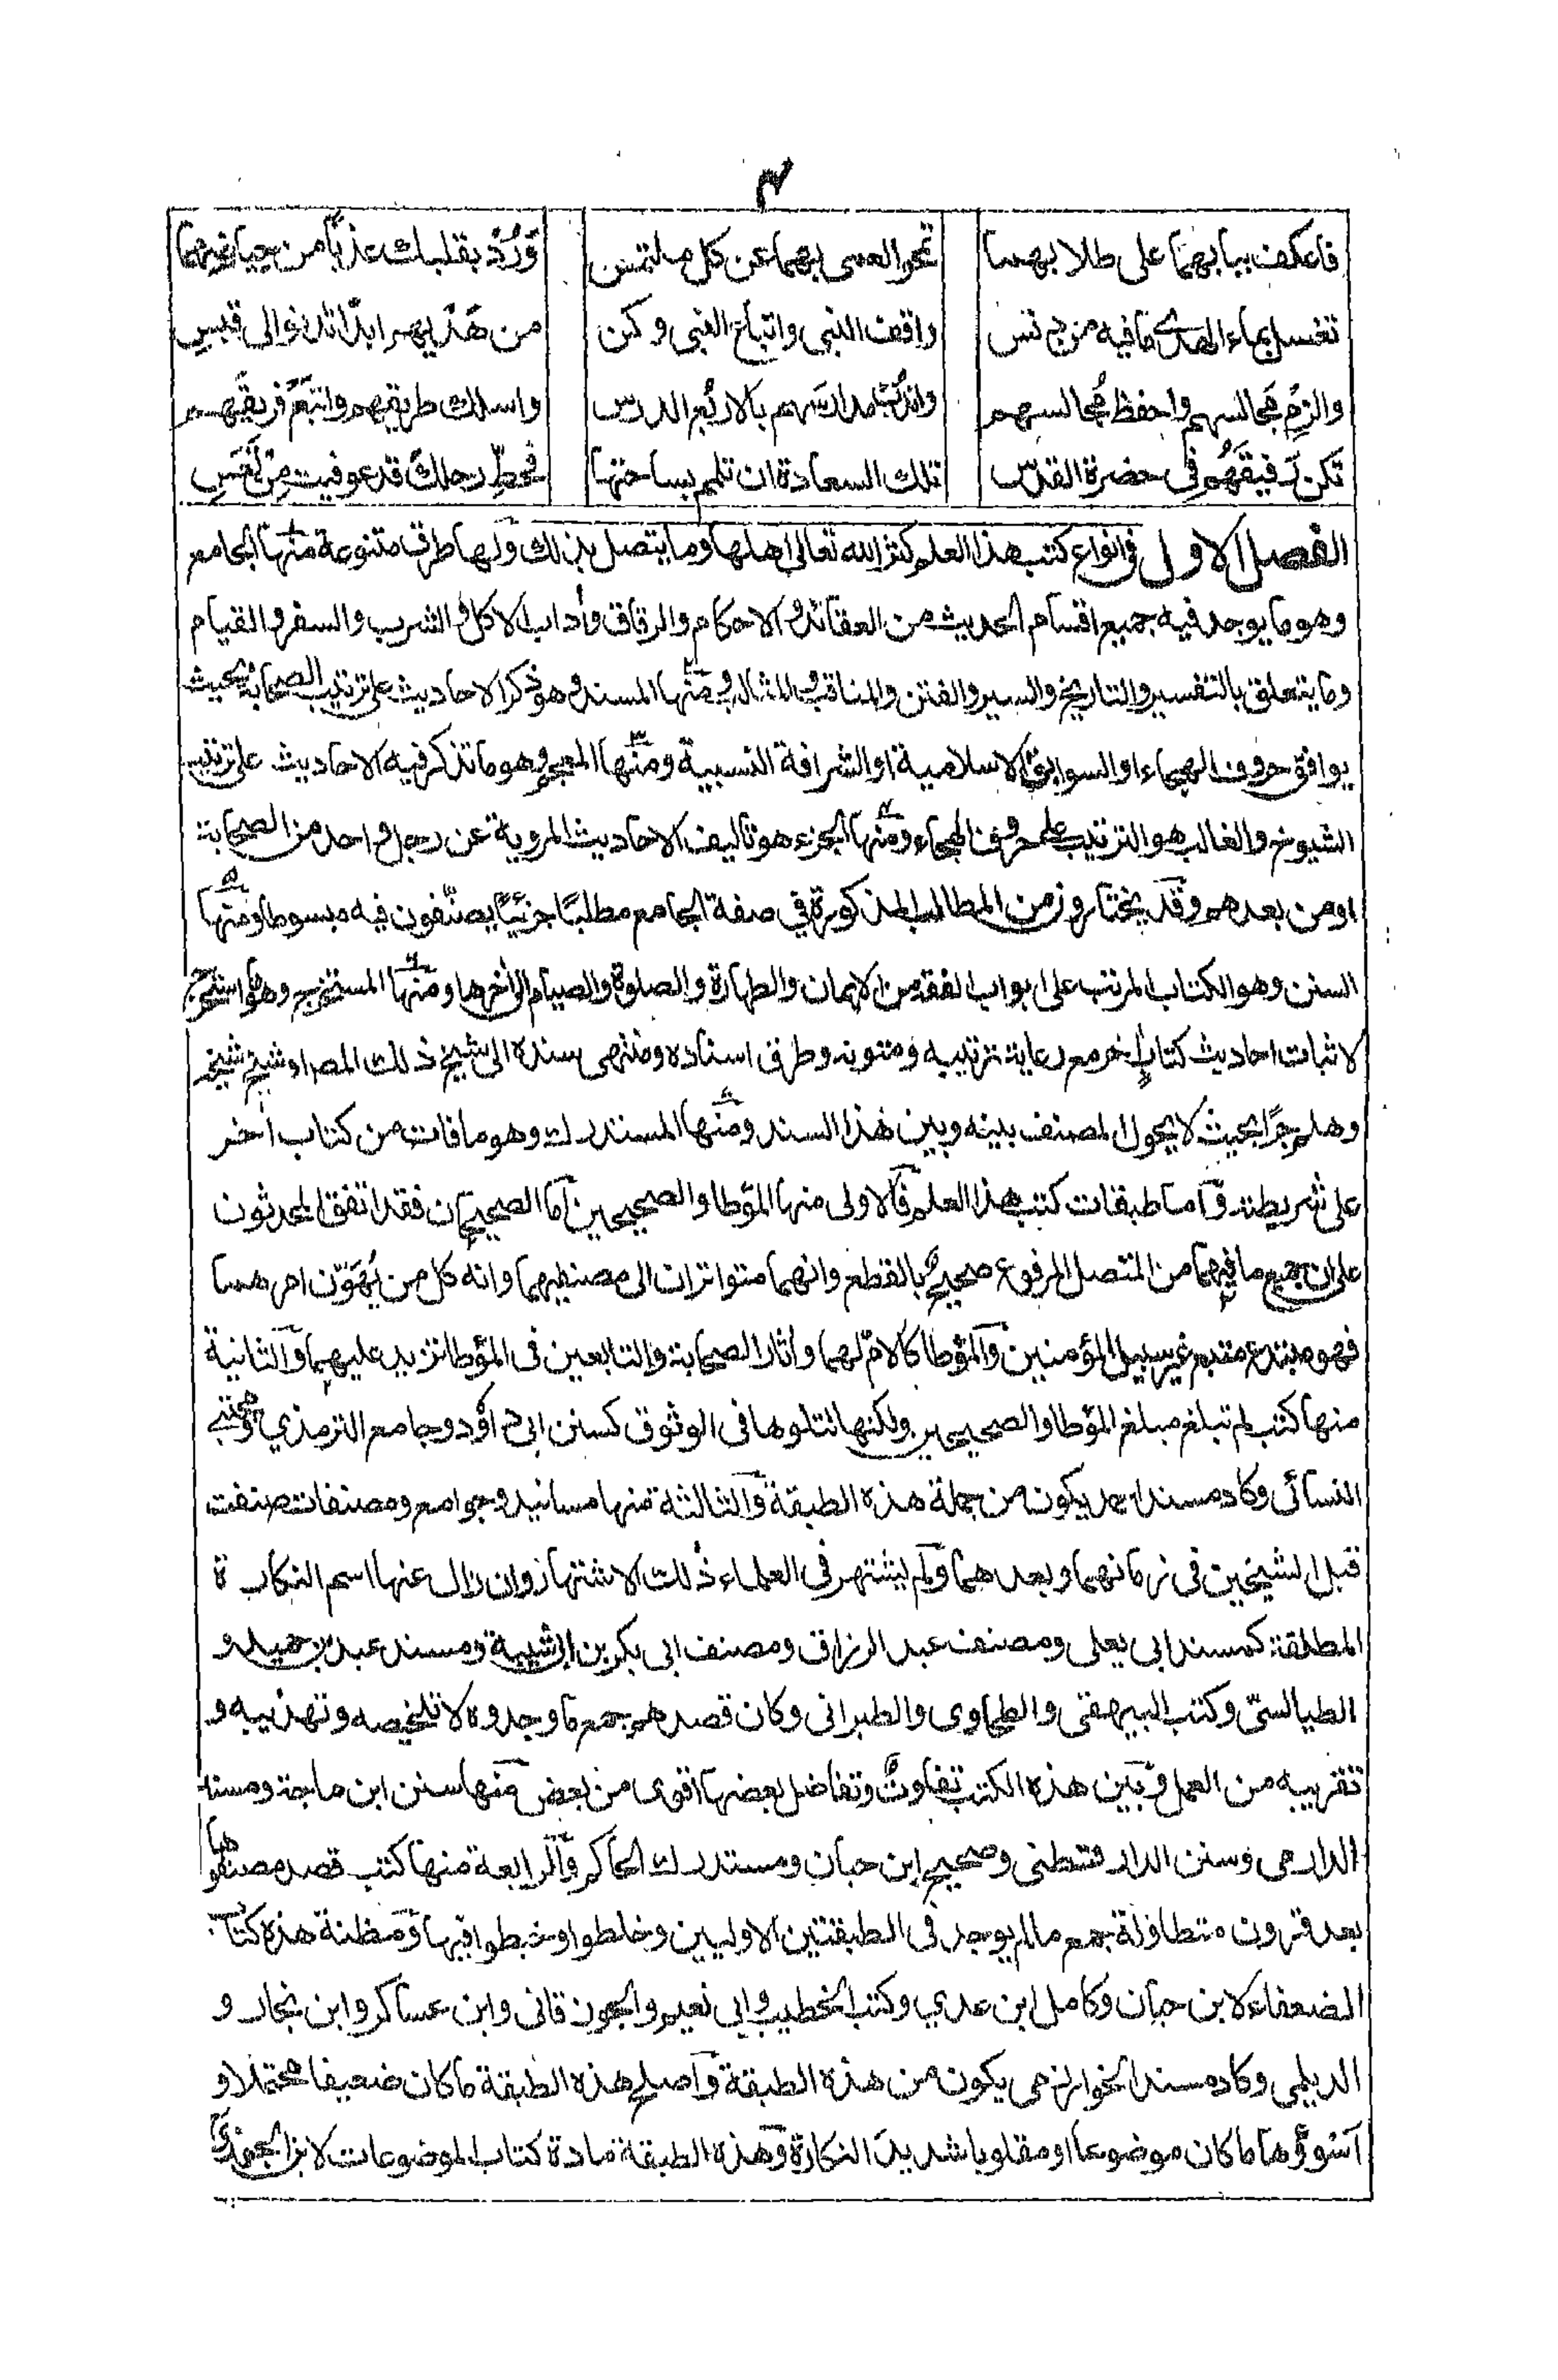 ٣
فاعكف ببابهما على طلابهما تمحو العمى بهما عن كل ملتمس ورُدْ بقلبك عذبًا من حياضهما
تغسل بماء الهدى ما فيه من دنس واقف النبي واتباع النبي وكن من هَدْيهم ابدًا تدنو الى قبس
والزم مجالسهم واحفظ مجالسهم واندب مدارسهم بالاربُع الدرس واسلك طريقهم واتبع فريقهم
تكن رفيقَهُم فى حضرة القدس تلك السعادة ان تلمم بساحتها فحطِّ رحلك قد عوفيت مِن تَعَسِ
الفصل الاول فى انواع كتب هذا العلم كثر الله تعالى اهلها وما يتصل بذلك ولها طرق متنوعة منها الجامع
وهو ما يوجد فيه جميع اقسام الحديث من العقائد والاحكام والرقاق وأداب الاكل والشرب والسفر والقيام
وما يتعلق بالتفسير والتاريخ والسير والفتن والمناقب والمثالب ومنها المسند وهو ذكر الاحاديث على ترتيب الصحابة بحيث
يوافق حروف الهجاء او السوابق الاسلامية او الشرافة النسبية ومنها المعجم وهو ما تذكر فيه الاحاديث على ترتيب
الشيوخ والغالب هو الترتيب على حروف الهجاء ومنها الجزء هو تاليف الاحاديث المروية عن رجل واحد من الصحابة
او من بعدهم وقد يختارون من المطالب المذكورة في صفة الجامع مطلبًا جزئيًا يصنّفون فيه مبسوطا ومنها
السنن وهو الكتاب المرتب على ابواب الفقه من الايمان والطهارة والصلوة والصيام الى أخرها ومنها المستخرج وهو ما استخرج
لاثبات احاديث كتاب أخر مع رعاية ترتيبه ومتونه وطرق اسناده ومنتهى سنده الى شيخ ذلك المصـ او شيخ شيخه
وهلم جرًا بحيث لا يحول المصنف بينه وبين هذا السند ومنها المستدرك وهو ما فات من كتاب أخر
على شريطته وآما طبقات كتب هذا العلم فالاولى منها المؤطا والصحيحين آما الصحيحان فقد اتفق المحدثون
على ان جميع ما فيهما من المتصل المرفوع صحيح بالقطع وانهما متواتران الى مصنفيهما وانه كل من يُهَوّن امرهما
فهو مبتدع متبع غير سبيل المؤمنين والمؤطا كالامّ لهما وأثار الصحابة والتابعين فى المؤطا تزيد عليهما والثانية
منها كتب لم تبلغ مبلغ المؤطا والصحيحين ولكنها تتلوها فى الوثوق كسنن ابى داؤد وجامع الترمذي ومجتبى
النسائى وكاد مسند احمد يكون من جملة هذه الطبقة والثالثة منها مسانيد وجوامع ومصنفات صنفت
قبل الشيخين فى زمانهما وبعدهما ولم يشتهر فى العلماء ذلك الاشتهار وان زال عنها اسم النكارة
المطلقة كمسند ابى يعلى ومصنف عبد الرزاق ومصنف ابى بكر بن ابى شيبة ومسند عبد بن حميد و
الطيالسيّ وكتب البيهقى والطحاوى والطبرانى وكان قصدهم جمع ما وجدوه لا تلخيصه وتهذيبه و
تقريبه من العمل وبين هذه الكتب تفاوت وتفاضل بعضها اقوى من بعض منها سنن ابن ماجة ومسند
الدارمى وسنن الدارقطنى وصحيح ابن حبان ومستدرك الحاكم والرابعة منها كتب قصد مصنفوها
بعد قرون متطاولة جمع ما لم يوجد فى الطبقتين الاوليين وخلطوا وخبطوا فيها ومظنة هذه كتاب
الضعفاء لابن حبان وكامل ابن عدي وكتب الخطيب وابى نعيم والجوزقانى وابن عساكر وابن نجار و
الديلمى وكاد مسند الخوارزمى يكون من هذه الطبقة وآصلح هذه الطبقة ما كان ضعيفا محتملا و
آسوؤها ما كان موضوعا او مقلوبا شديد النكارة وهذه الطبقة مادة كتاب الموضوعات لابن الجوزى